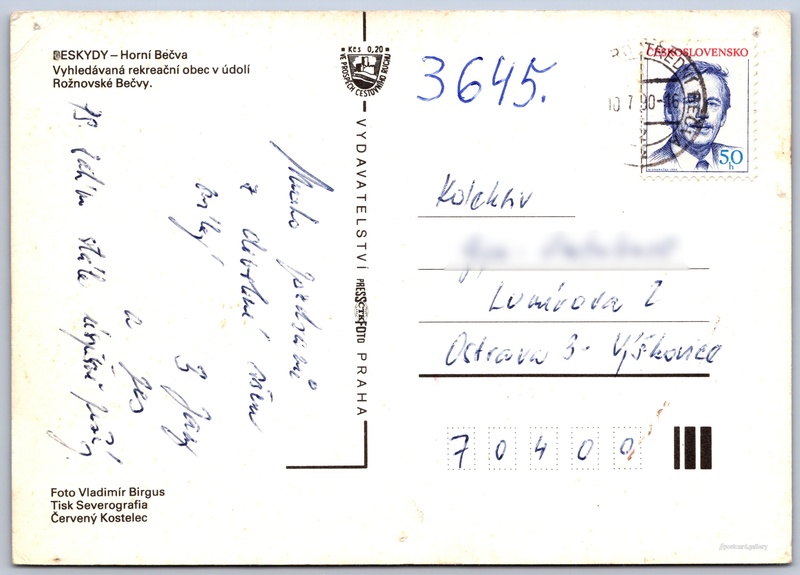 BESKYDY – Horní Bečva
Vyhledávaná rekreační obec v údolí
Rožnovské Bečvy.
Kčs 0,20
VE PROSPĚCH CESTOVNÍHO RUCHU
VYDAVATELSTVÍ PRESSFOTO PRAHA
3645.
ČESKOSLOVENSKO
50
h
10.7.90-16
PROSTŘEDNÍ BEČVA
Mnoho pozdravů
z dovolené všem
a pes
stále
Kolektiv
Lumírova 2
Ostrava 3 - Výškovice
70400
Foto Vladimír Birgus
Tisk Severografia
Červený Kostelec
postcard.gallery